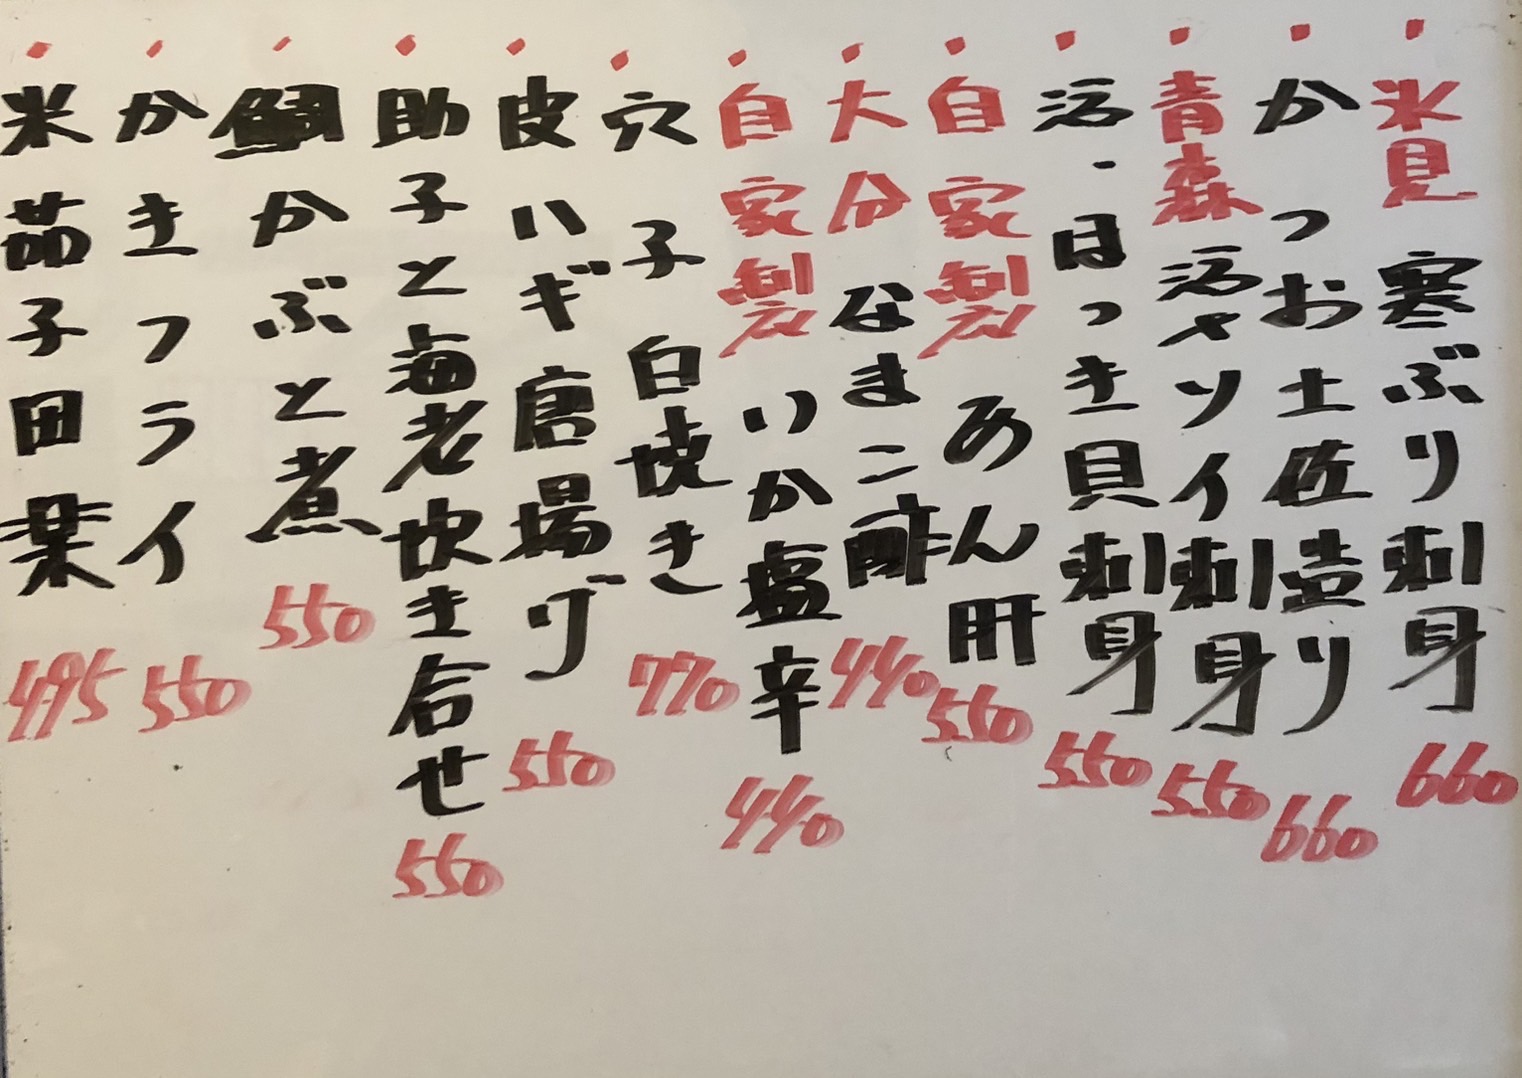 氷見 寒ぶり刺身 660
かつお土佐造り 660
青森 活〆ソイ刺身 550
活・ほっき貝刺身 550
自家製 あん肝 550
大分 なまこ酢 440
自家製 いか塩辛 440
穴子 白焼き 770
皮ハギ唐揚げ 550
助子と海老炊き合せ 550
鯛かぶと煮 550
かきフライ 550
米茄子田楽 495